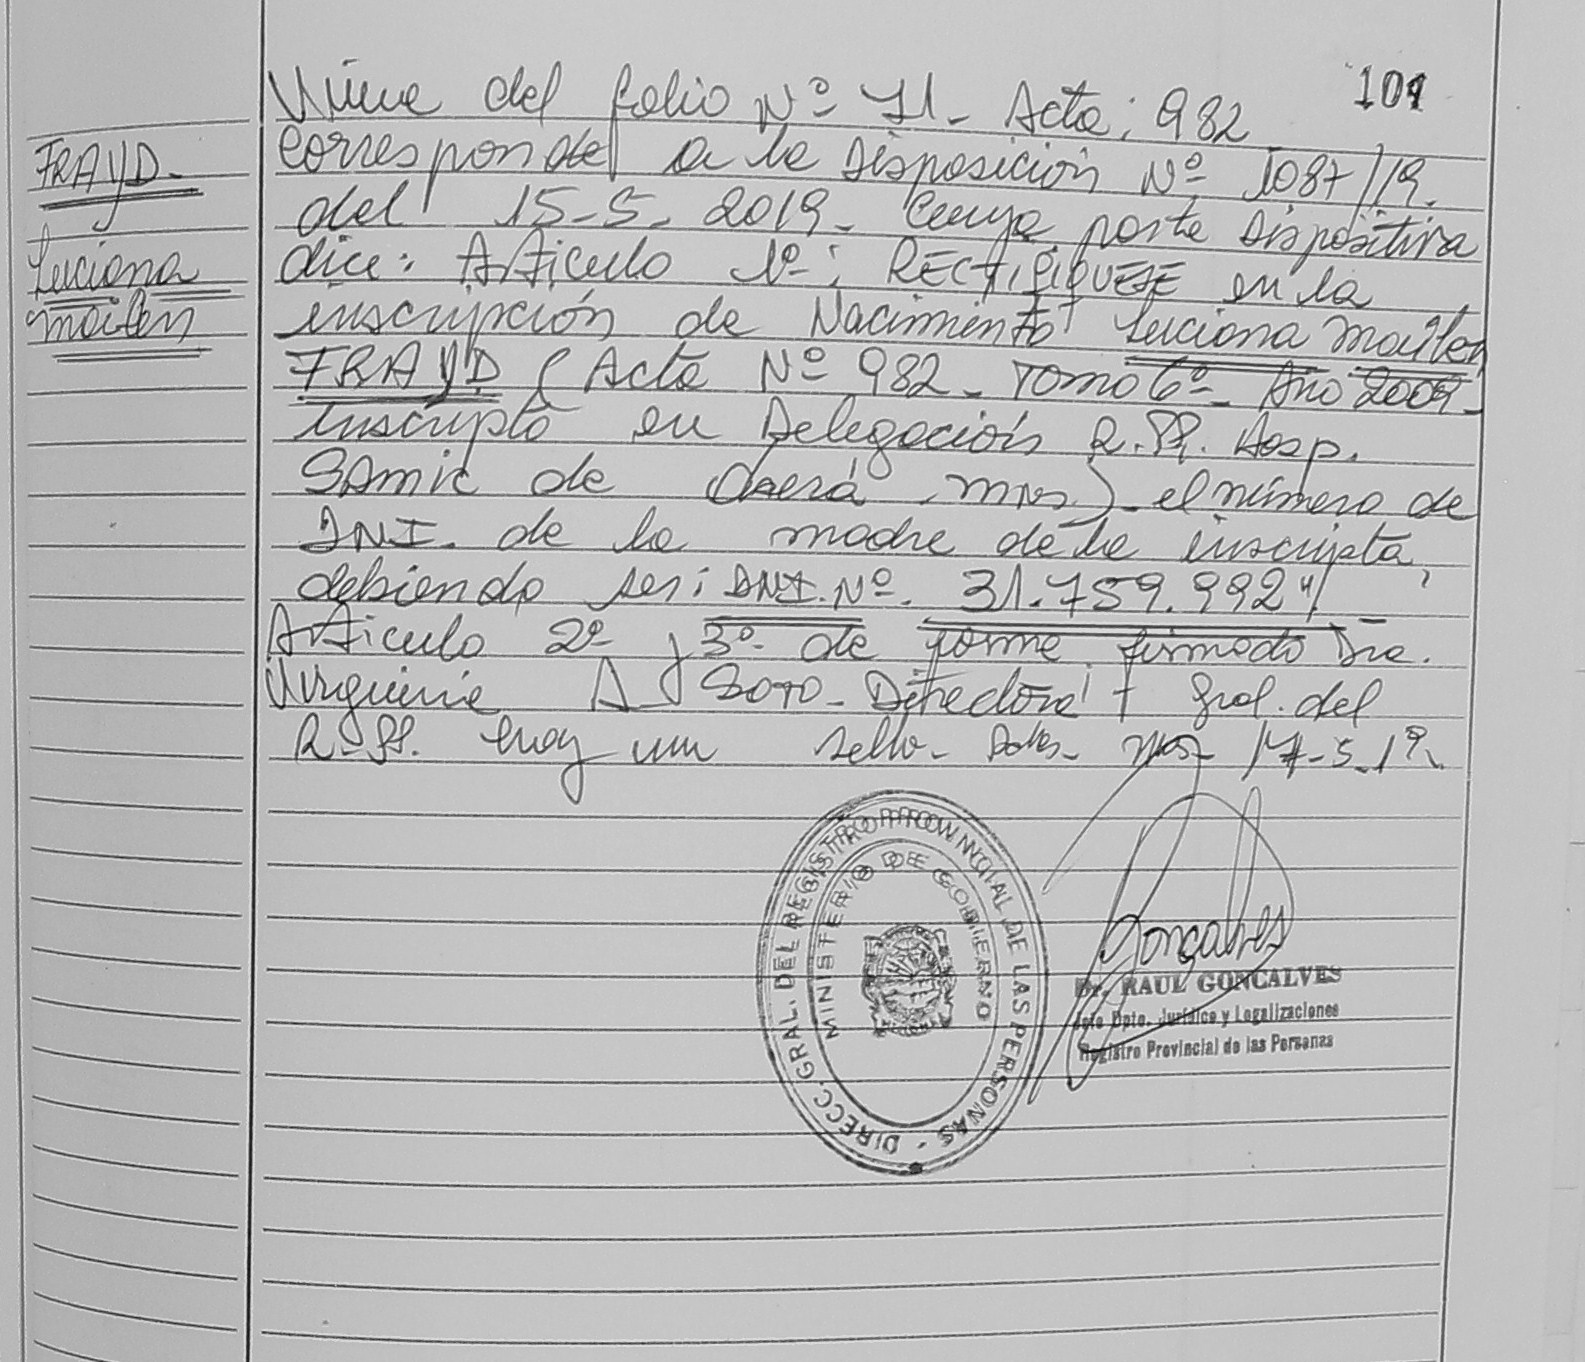 101
Viene del folio Nº 71- Acta: 982
corresponde a la Disposición Nº 1087/19.
del 15-5-2019- Cuya parte dispositiva
dice: Artículo 1º: RECTIFIQUESE en la
inscripción de Nacimiento Luciana Mailen
FRAYD (Acta Nº 982- Tomo 6º- Año 2009-
inscripta en Delegación R.PP. Hosp.
SAMIC de Oberá, Mnes)- el número de
DNI. de la madre de la inscripta,
debiendo ser: DNI. Nº. 31.759.992"/
Artículo 2º y 3º- de forma firmado Dra.
Virginia A. Soto- Directora Gral. del
R.PP. hay un sello- Pdas- Mnes- 17-5-19.
FRAYD-
Luciana
Mailen
DIRECC. GRAL. DEL REGISTRO PROVINCIAL DE LAS PERSONAS -
MINISTERIO DE GOBIERNO
Goncalves
Dr. RAUL GONCALVES
Jefe Dpto. Jurídico y Legalizaciones
Registro Provincial de las Personas